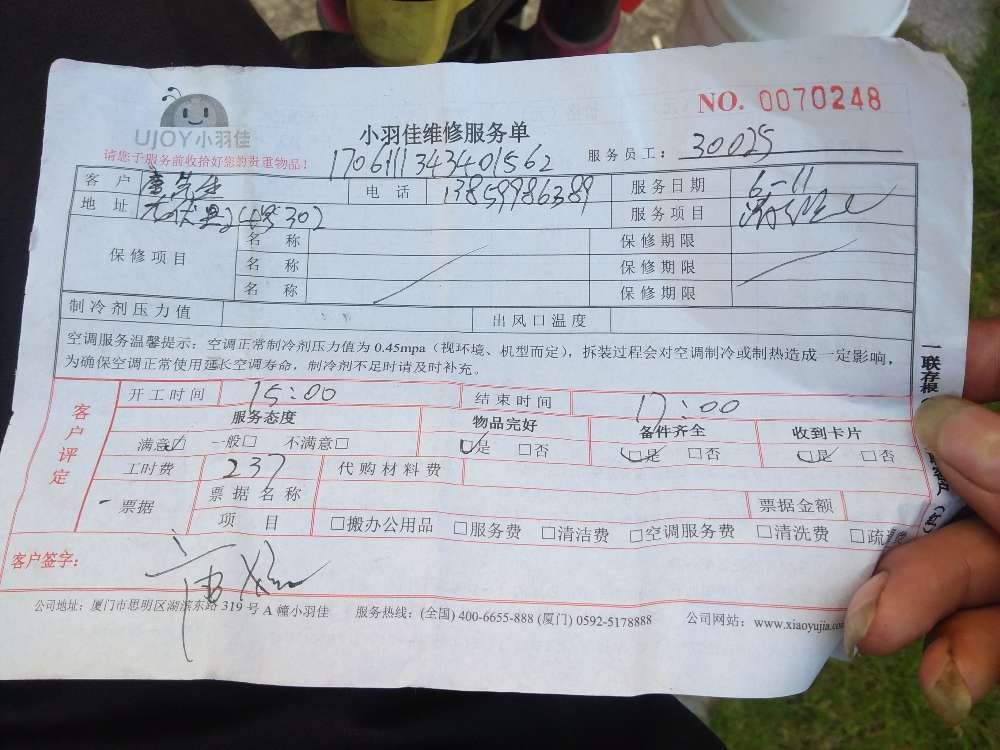 NO. 0070248
UJOY小羽佳
小羽佳维修服务单
请您于服务前收拾好您的贵重物品!
1706111343401562
服务员工: 30025
客户 童先生 电话 13859986389 服务日期 6-11
地址 302 服务项目
保修项目 名称 保修期限
名称 保修期限
名称 保修期限
制冷剂压力值 出风口温度
空调服务温馨提示:空调正常制冷剂压力值为 0.45mpa(视环境、机型而定),拆装过程会对空调制冷或制热造成一定影响,
为确保空调正常使用延长空调寿命,制冷剂不足时请及时补充。
一联存根
客户评定
开工时间 15:00 结束时间 17:00
服务态度 物品完好 备件齐全 收到卡片
满意☑ 一般□ 不满意□ ☑是 □否 ☑是 □否 ☑是 □否
工时费 237 代购材料费
票据 票据名称 票据金额
项目 □搬办公用品 □服务费 □清洁费 □空调服务费 □清洗费 □疏
客户签字:
公司地址:厦门市思明区湖滨东路 319 号 A 幢小羽佳 服务热线:(全国) 400-6655-888 (厦门) 0592-5178888 公司网站:www.xiaoyujia.co